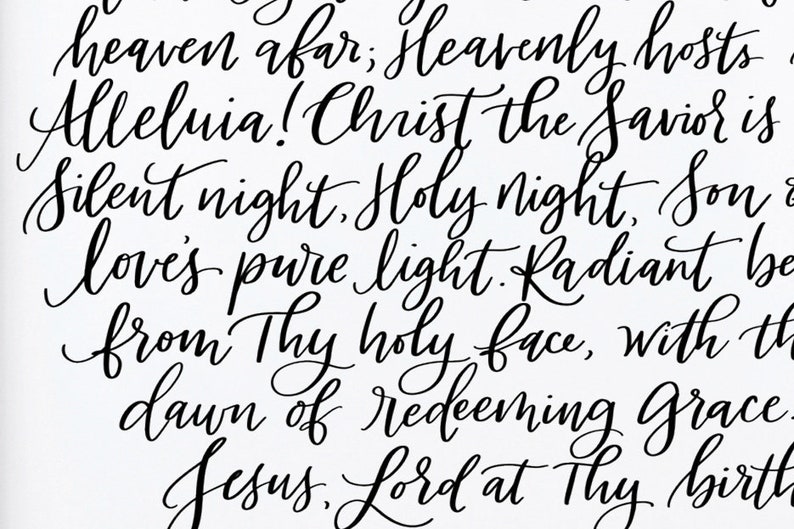 heaven afar; Heavenly hosts
Alleluia! Christ the Savior is
Silent night, Holy night, Son
love's pure light. Radiant be
from Thy holy face, with th
dawn of redeeming Grace.
Jesus, Lord at Thy birth